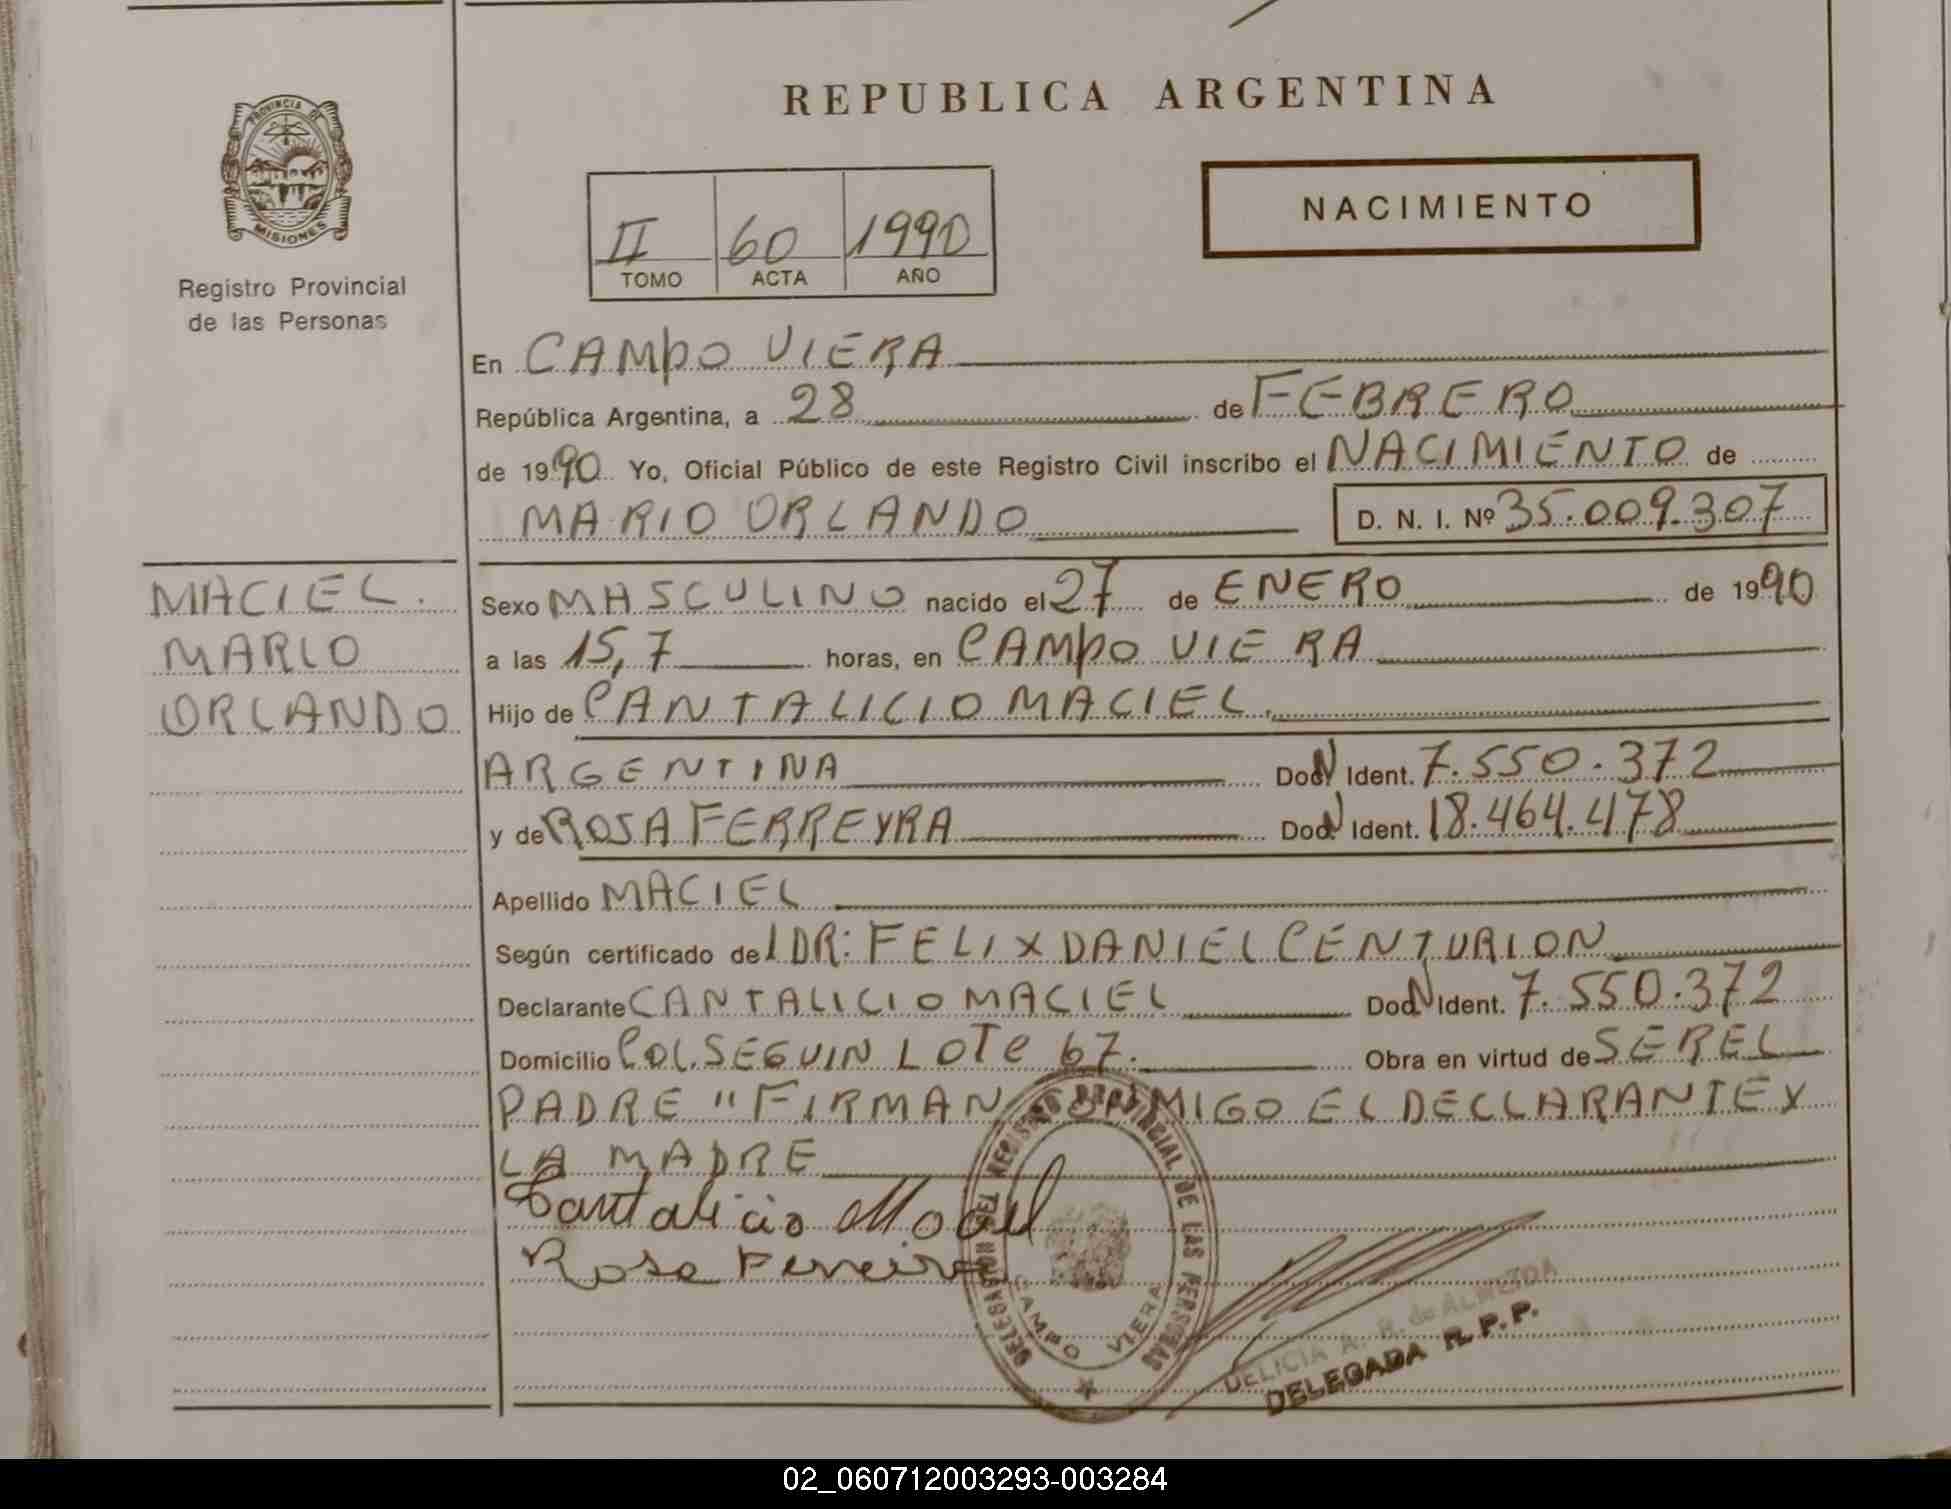 REPUBLICA ARGENTINA
PROVINCIA DE
MISIONES
Registro Provincial
de las Personas
II 60 1990
TOMO ACTA AÑO
NACIMIENTO
En CAMPO VIERA
República Argentina, a 28 de FEBRERO
de 1990 Yo, Oficial Público de este Registro Civil inscribo el NACIMIENTO de
MARIO ORLANDO D. N. I. Nº 35.009.307
MACIEL.
MARIO
ORLANDO
Sexo MASCULINO nacido el 27 de ENERO de 1990
a las 15,7 horas, en CAMPO VIERA
Hijo de CANTALICIO MACIEL.
ARGENTINA Doc. N Ident. 7.550.372
y de ROSA FERREYRA Doc. N Ident. 18.464.478
Apellido MACIEL
Según certificado de DR: FELIX DANIEL CENTURION
Declarante CANTALICIO MACIEL Doc. N Ident. 7.550.372
Domicilio COL. SEGUIN LOTE 67. Obra en virtud de SER EL
PADRE "FIRMAN CONMIGO EL DECLARANTE Y
LA MADRE
Cantalicio Maciel
Rosa Ferreira
DELEGACION DEL REGISTRO PROVINCIAL DE LAS PERSONAS
CAMPO VIERA
DELICIA A. R. de ALMEIDA
DELEGADA R. P. P.
02_060712003293-003284